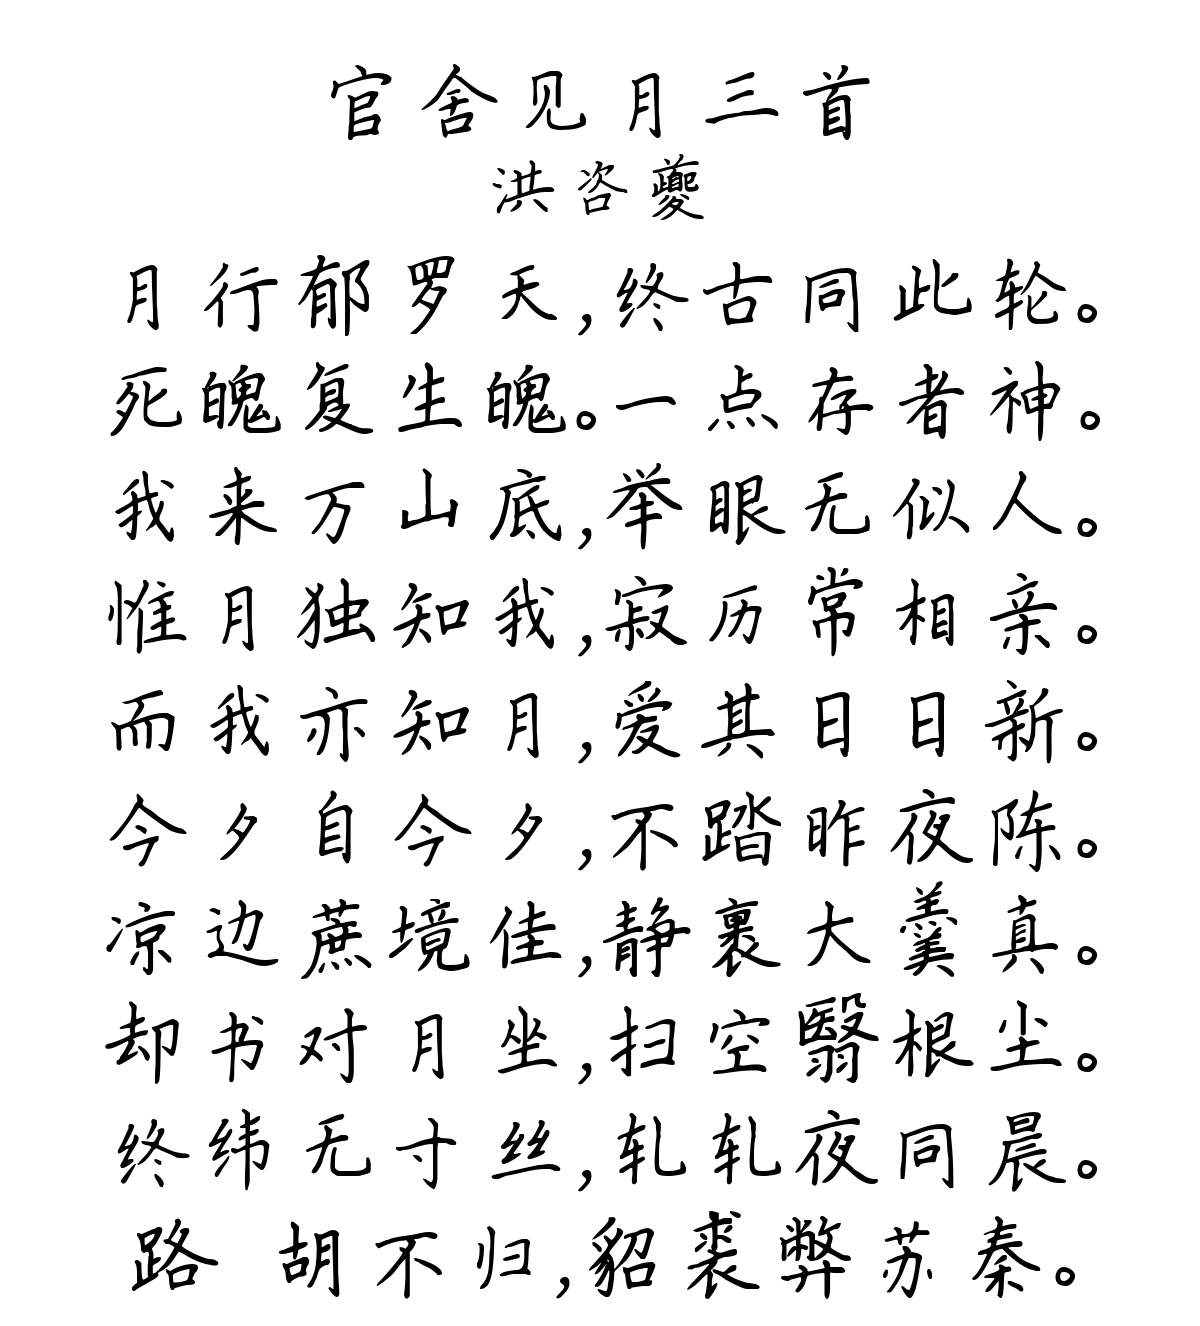 官舍见月三首
洪咨夔
月行郁罗天,终古同此轮。
死魄复生魄。一点存者神。
我来万山底,举眼无似人。
惟月独知我,寂历常相亲。
而我亦知月,爱其日日新。
今夕自今夕,不踏昨夜陈。
凉边蔗境佳,静裹大羹真。
却书对月坐,扫空翳根尘。
终纬无寸丝,轧轧夜同晨。
路 胡不归,貂裘弊苏秦。